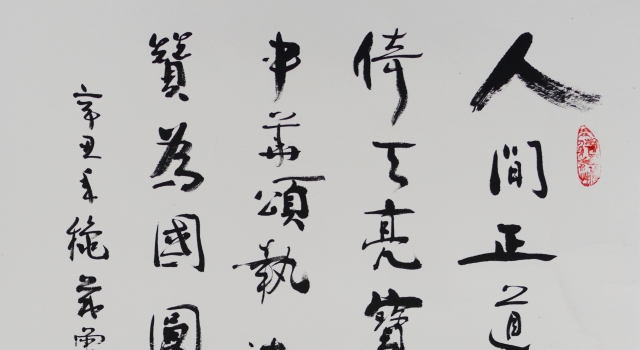 人間正道
倚天亮寶
中華頌執
贊為國圓
辛丑年